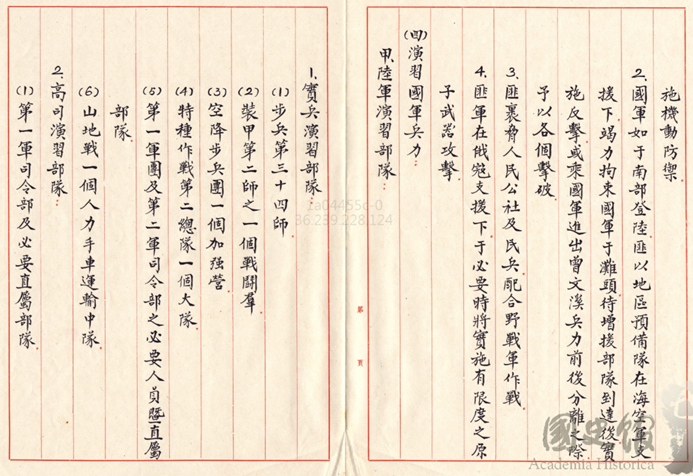 施機動防禦。
2.國軍如于南部登陸匪以地區預備隊在海空軍支
援下竭力拘束國軍于灘頭待增援部隊到達後實
施反擊或乘國軍進出曾文溪兵力前後分離之際
予以各個擊破。
3.匪裹脅人民公社及民兵配合野戰軍作戰
4.匪軍在俄寇支援下于必要時將實施有限度之原
子武器攻擊
(四)演習國軍兵力:
甲、陸軍演習部隊:
第 頁
1.實兵演習部隊:
(1)步兵第三十四師
(2)裝甲第二師之一個戰鬪羣
(3)空降步兵團一個加强營
(4)特種作戰第二總隊一個大隊
(5)第一軍團及第二軍司令部之必要人員暨直屬
部隊。
(6)山地戰一個人力手車運輸中隊
2.高司演習部隊:
(1)第一軍司令部及必要直屬部隊
1a04455c-0
36.239.228.124
國史館
Academia Historica